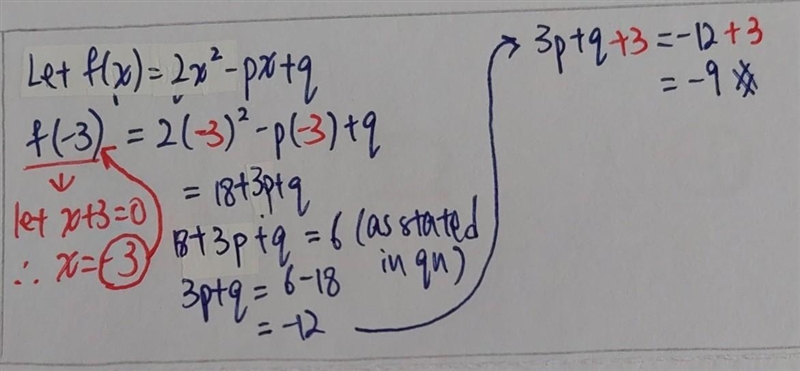 Let f(x) = 2x² - px + q
f(-3) = 2(-3)² - p(-3) + q
let x+3=0
∴ x=-3
= 18+3p+q
18+3p+q = 6 (as stated in qn)
3p+q = 6-18
= -12
3p+q+3 = -12+3
= -9